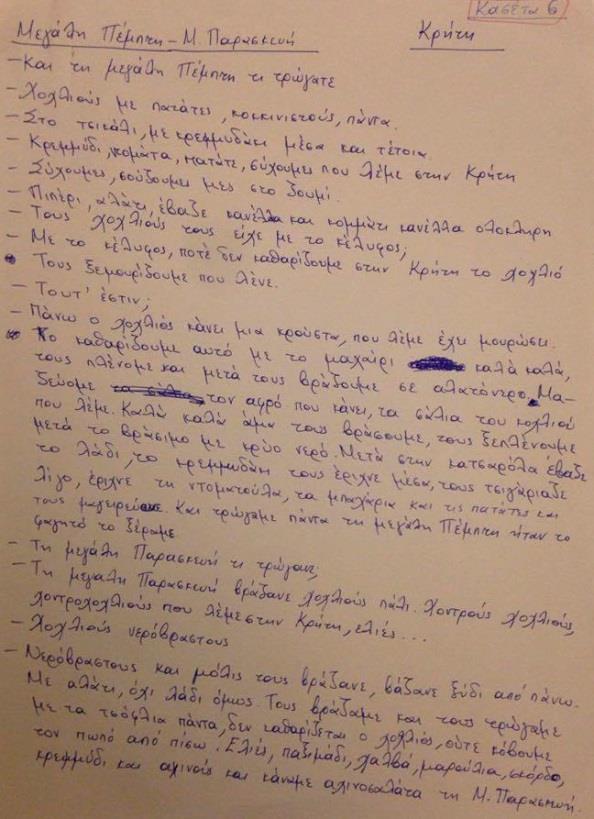 Κασέτα 6
Μεγάλη Πέμπτη - Μ. Παρασκευή Κρήτη
- Και τη μεγάλη Πέμπτη τι τρώγατε
- Χοχλιούς με πατάτες, κοκκινιστούς, πάντα.
- Στο τσικάλι, με κρεμμυδάκι μέσα και τέτοια.
- Κρεμμύδι, ντομάτα, πατάτε, σύχουμες που λέμε στην Κρήτη
- Σύχουμες, σούζουμες μες στο ζουμί.
- Πιπέρι, αλάτι, έβαζε κανέλλα και κομμάτι κανέλλα ολόκληρη
- Τους χοχλιούς τους είχε με το κέλυφος;
- Με το κέλυφος, ποτέ δεν καθαρίζουμε στην Κρήτη το χοχλιό
Τους ξεμουρίζουμε που λένε.
- Τουτ' έστιν;
- Πάνω ο χοχλιός κάνει μια κρούστα, που λέμε έχει μουρώσει.
Το καθαρίζουμε αυτό με το μαχαίρι καλά καλά,
τους πλένομε και μετά τους βράζουμε σε αλατόνερο. Μα-
ζεύομε τον αφρό που κάνει, τα σάλια του χοχλιού
που λέμε. Καλά καλά άμα τους βράσουμε, τους ξεπλένουμε
μετά το βράσιμο με κρύο νερό. Μετά στην κατσαρόλα έβαζε
το λάδι, το κρεμμυδάκι τους έριχνε μέσα, τους τσιγάριαζε
λίγο, έριχνε τη ντοματούλα, τα μπαχάρια και τις πατάτες και
τους μαγειρεύανε. Και τρώγαμε πάντα τη μεγάλη Πέμπτη ήταν το
φαγητό το ξέραμε.
- Τη μεγάλη Παρασκευή τι τρώγανε;
- Τη μεγάλη Παρασκευή βράζανε χοχλιούς πάλι. Χοντρούς χοχλιούς,
χοντροχοχλιούς που λέμε στην Κρήτη, ελιές...
- Χοχλιούς νερόβραστους
- Νερόβραστους και μόλις τους βράζανε, βάζανε ξύδι από πάνω.
Με αλάτι, όχι λάδι όμως. Τους βράζαμε και τους τρώγαμε
με τα τσόφλια πάντα, δεν καθαρίζεται ο χοχλιός, ούτε κόβουμε
τον πωπό από πίσω. Ελιές, παξιμάδι, χαλβά, μαρούλια, σκόρδο,
κρεμμύδι και αχινούς και κάνωμε αχινοσαλάτα τη Μ. Παρασκευή.